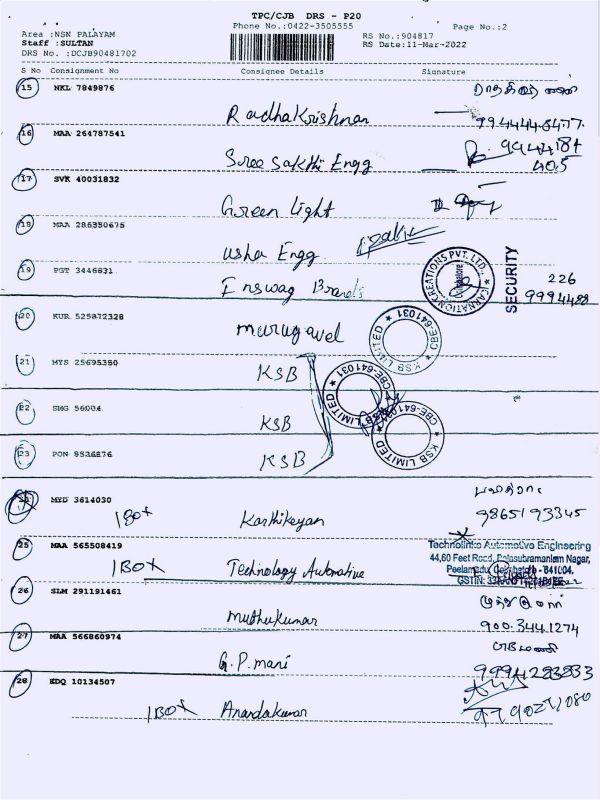 TPC/CJB DRS - P20
Phone No.:0422-3505555
Page No.:2
Area :NSN PALAYAM
Staff :SULTAN
DRS No. :DCJB90481702
RS No.:904817
RS Date:11-Mar-2022
S No Consignment No Consignee Details Signature
15 NKL 7849876
Radhakrishnan
16 MAA 264787541
Sree Sakthi Engg
17 SVK 40031832
Green light
18 MAA 286350675
Usha Engg
19 PGT 3446831
Inswag Brands
CARNATION CREATIONS PVT. LTD.,
SECURITY
226
20 KUR 525872328
murugavel
KSB LIMITED ★ CBE-641031 ★
21 MYS 25695380
KSB
KSB LIMITED ★ CBE-641031 ★
22 SMG 56004
KSB
KSB LIMITED ★
23 PON 9526876
KSB
MYD 3614030
Karthikeyan
9865193345
25 MAA 565508419
1BOX Technology Automative
Technolinks Automotive Engineering
44,60 Feet Road, Balasubramaniam Nagar,
Peelamedu, Coimbatore - 641004.
GSTIN:
26 SLM 291191461
muthukumar
900.3441274
27 MAA 566860974
G.P.mani
28 EDQ 10134507
1BOX Anandakumar